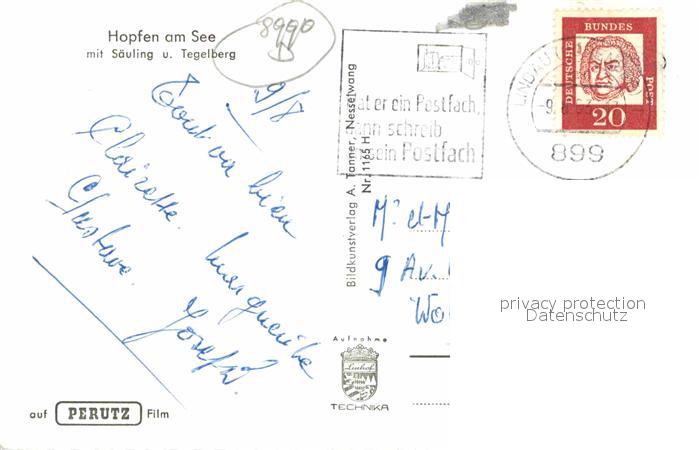 Hopfen am See
mit Säuling u. Tegelberg
8990
D
9/8
Tout va bien
Clairette. Marguerite
Gustave. Joseph.
auf PERUTZ Film
Bildkunstverlag A. Tanner, Nesselwang
Nr. 1165 H
Aufnahme
Linhof
TECHNIKA
at er ein Postfach,
ann schreib
ein Postfach
LINDAU
-9.
899
DEUTSCHE
BUNDES
POST
20
9 Av.
privacy protection
Datenschutz